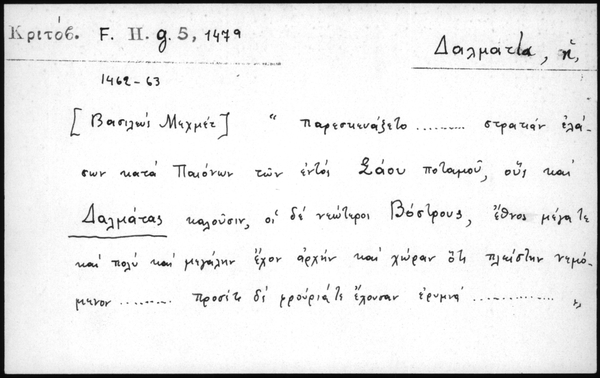 Κριτόβ. F. H. g. 5, 1479
Δαλμάτια, ἡ,
1462-63
[Βασιλεύς Μεχμέτ] “ παρεσκευάζετο ......... στρατιάν ἐλά-
σων κατά Παιόνων τῶν ἐντός Σάου ποταμοῦ, οὕς καί
Δαλμάτας καλοῦσιν, οἱ δέ νεώτεροι Βόστρους, ἔθνος μέγα τε
καί πολύ καί μεγάλην ἔχον ἀρχήν καί χώραν ὅτι πλείστην νεμό-
μενον ......... προσέτι δέ φρούριά τε ἔχουσαν ἐρυμνά ............ „